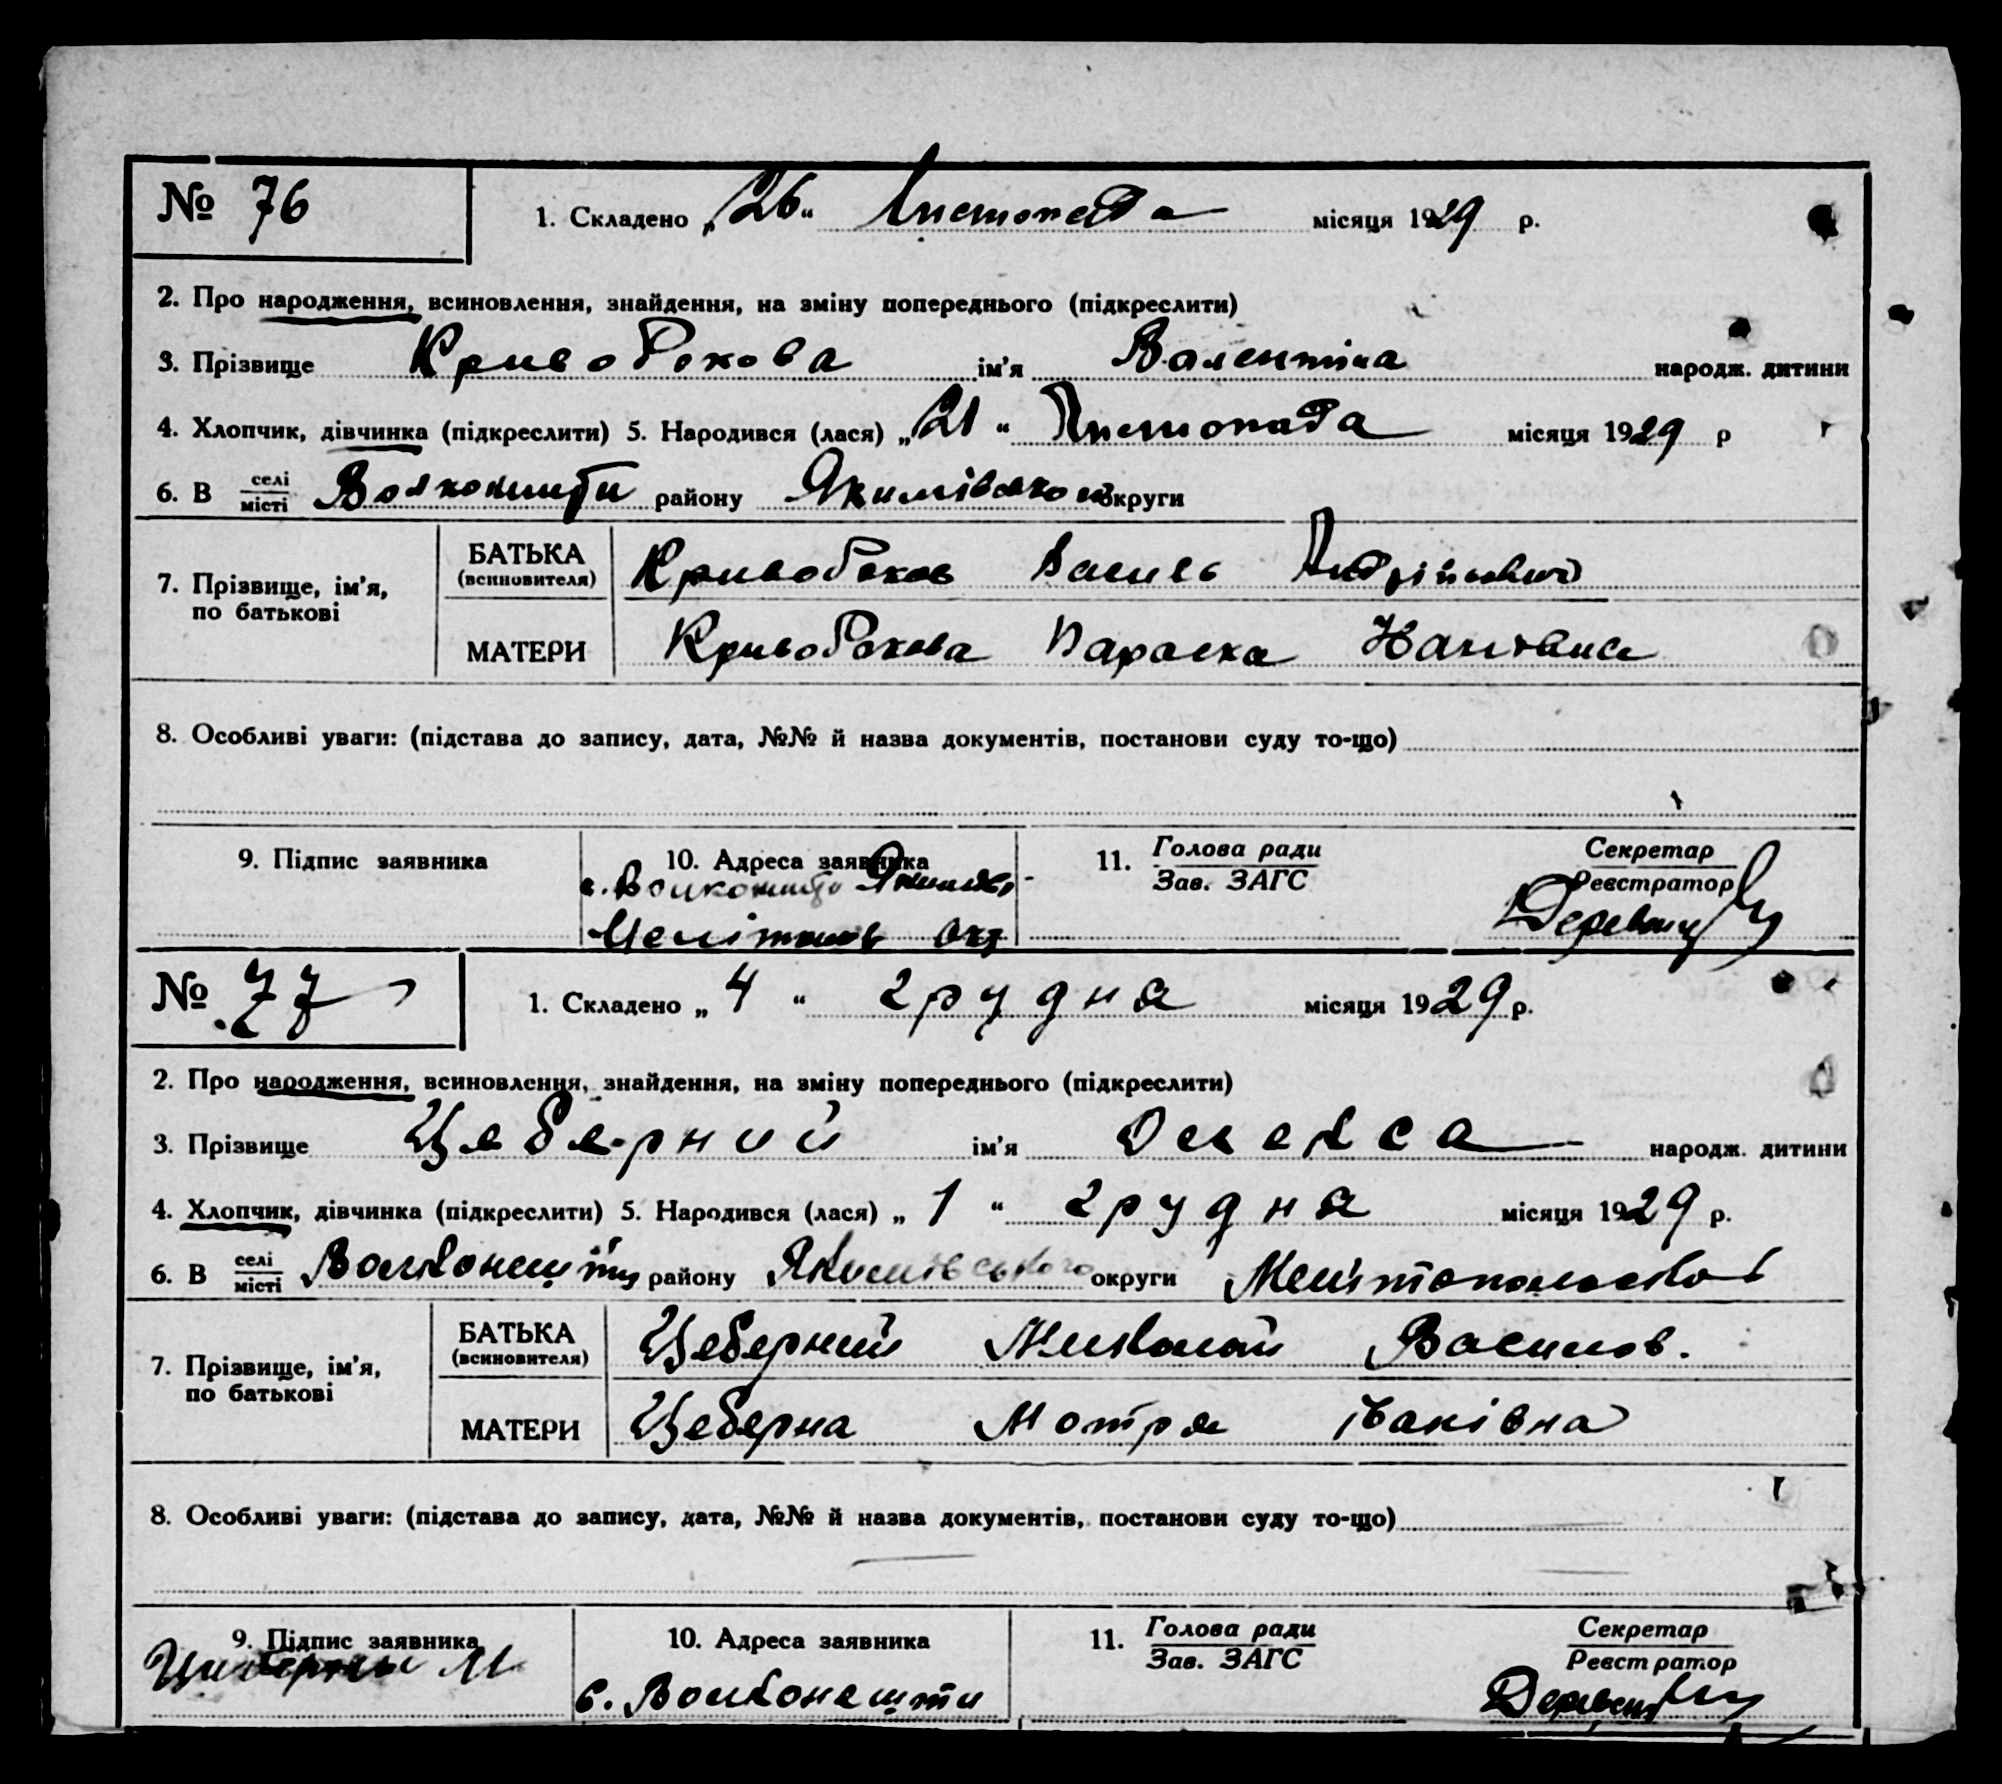 № 76 1. Складено „26“ Листопада місяця 1929 р.
2. Про народження, всиновлення, знайдення, на зміну попереднього (підкреслити)
3. Прізвище Кривобокова ім'я Валентіна народж. дитини
4. Хлопчик, дівчинка (підкреслити) 5. Народився (лася) „21“ Листопада місяця 1929 р
6. В селі місті району Якимівського округи
7. Прізвище, ім'я, по батькові
БАТЬКА (всиновителя) Кривобоков Василь Андрійович
МАТЕРИ Кривобокова Параска
8. Особливі уваги: (підстава до запису, дата, №№ й назва документів, постанови суду то-що)
9. Підпис заявника 10. Адреса заявника 11. Голова ради Зав. ЗАГС Секретар Реєстратор
№ 77 1. Складено „4“ грудня місяця 1929 р.
2. Про народження, всиновлення, знайдення, на зміну попереднього (підкреслити)
3. Прізвище Цеберний ім'я Олекса народж. дитини
4. Хлопчик, дівчинка (підкреслити) 5. Народився (лася) „1“ грудня місяця 1929 р.
6. В селі місті Волконешти району Якимівського округи
7. Прізвище, ім'я, по батькові
БАТЬКА (всиновителя) Цеберний Миколай Василов.
МАТЕРИ Цеберна Мотря Іванівна
8. Особливі уваги: (підстава до запису, дата, №№ й назва документів, постанови суду то-що)
9. Підпис заявника 10. Адреса заявника 11. Голова ради Зав. ЗАГС Секретар Реєстратор
с. Волконешти